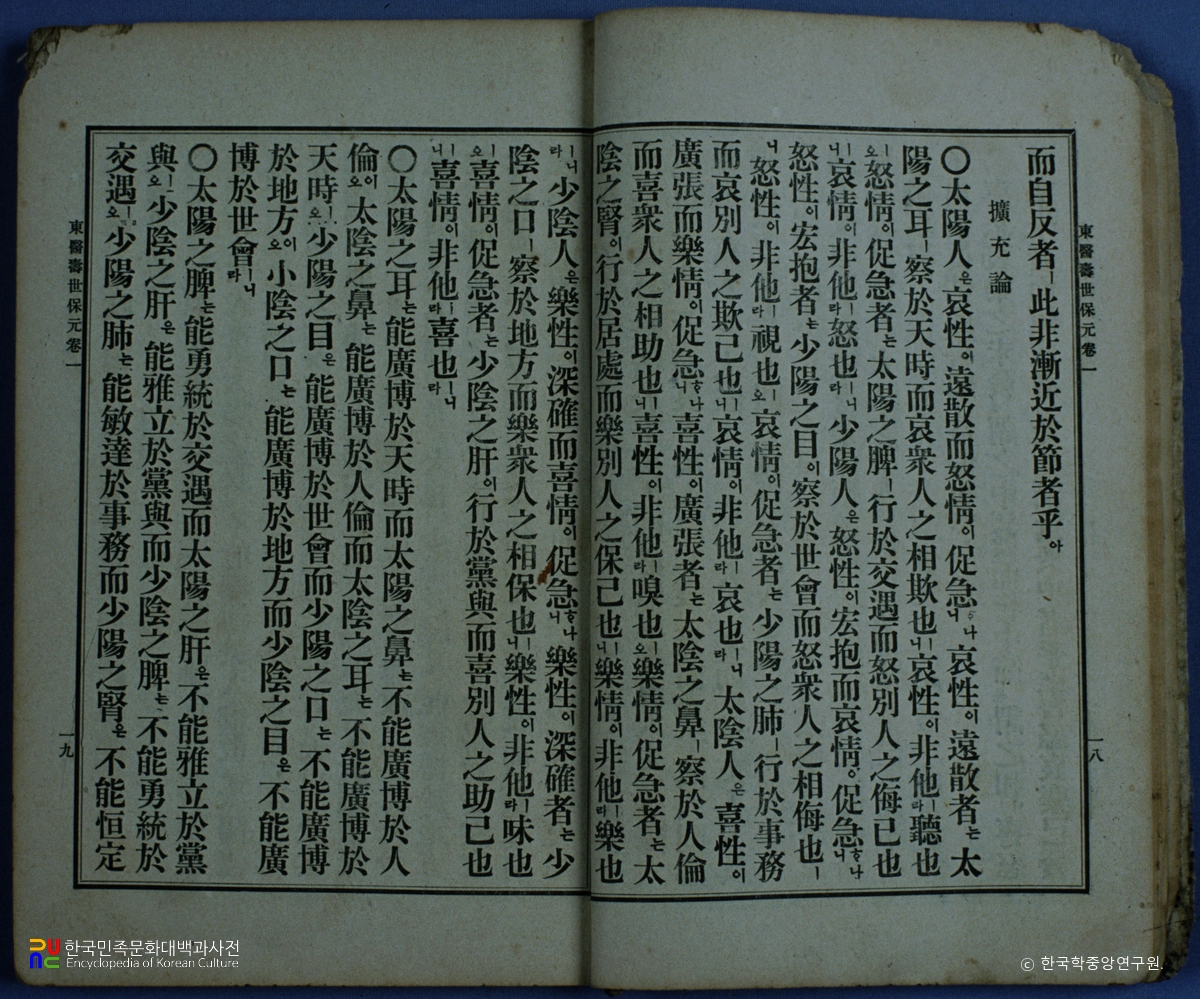 東醫壽世保元卷一
一八
而自反者ㅣ此非漸近於節者乎아
擴充論
〇太陽人은哀性이遠散而怒情이促急ᄒᆞ나니哀性이遠散者는太
陽之耳ㅣ察於天時而哀衆人之相欺也ㅣ니哀性이非他ㅣ라聽也
ㅣ오怒情이促急者는太陽之脾ㅣ行於交遇而怒別人之侮己也
ㅣ니哀情이非他ㅣ라怒也ㅣ니라少陽人은怒性이宏抱而哀情이促急ᄒᆞ나니
怒性이宏抱者는少陽之目이察於世會而怒衆人之相侮也ㅣ
니怒性이非他ㅣ라視也ㅣ오哀情이促急者는少陽之肺ㅣ行於事務
而哀別人之欺己也ㅣ니哀情이非他ㅣ라哀也ㅣ니라太陰人은喜性이
廣張而樂情이促急ᄒᆞ나니喜性이廣張者는太陰之鼻ㅣ察於人倫
而喜衆人之相助也ㅣ니喜性이非他ㅣ라嗅也ㅣ오樂情이促急者는太
陰之腎이行於居處而樂別人之保己也ㅣ니樂情이非他ㅣ라樂也
ㅣ니라少陰人은樂性이深確而喜情이促急ᄒᆞ나니樂性이深確者는少
陰之口ㅣ察於地方而樂衆人之相保也ㅣ니樂性이非他ㅣ라味也
ㅣ오喜情이促急者는少陰之肝이行於黨與而喜別人之助己也
ㅣ니喜情이非他ㅣ라喜也ㅣ니라
〇太陽之耳는能廣博於天時而太陽之鼻는不能廣博於人
倫이오太陰之鼻는能廣博於人倫而太陰之耳는不能廣博於
天時ㅣ오少陽之目은能廣博於世會而少陽之口는不能廣博
於地方이오小陰之口는能廣博於地方而少陰之目은不能廣
博於世會ㅣ니라
〇太陽之脾는能勇統於交遇而太陽之肝은不能雅立於黨
與ㅣ오少陰之肝은能雅立於黨與而少陰之脾는不能勇統於
交遇ㅣ오少陽之肺는能敏達於事務而少陽之腎은不能恒定
東醫壽世保元卷一
一九
한국민족문화대백과사전
Encyclopedia of Korean Culture
© 한국학중앙연구원.